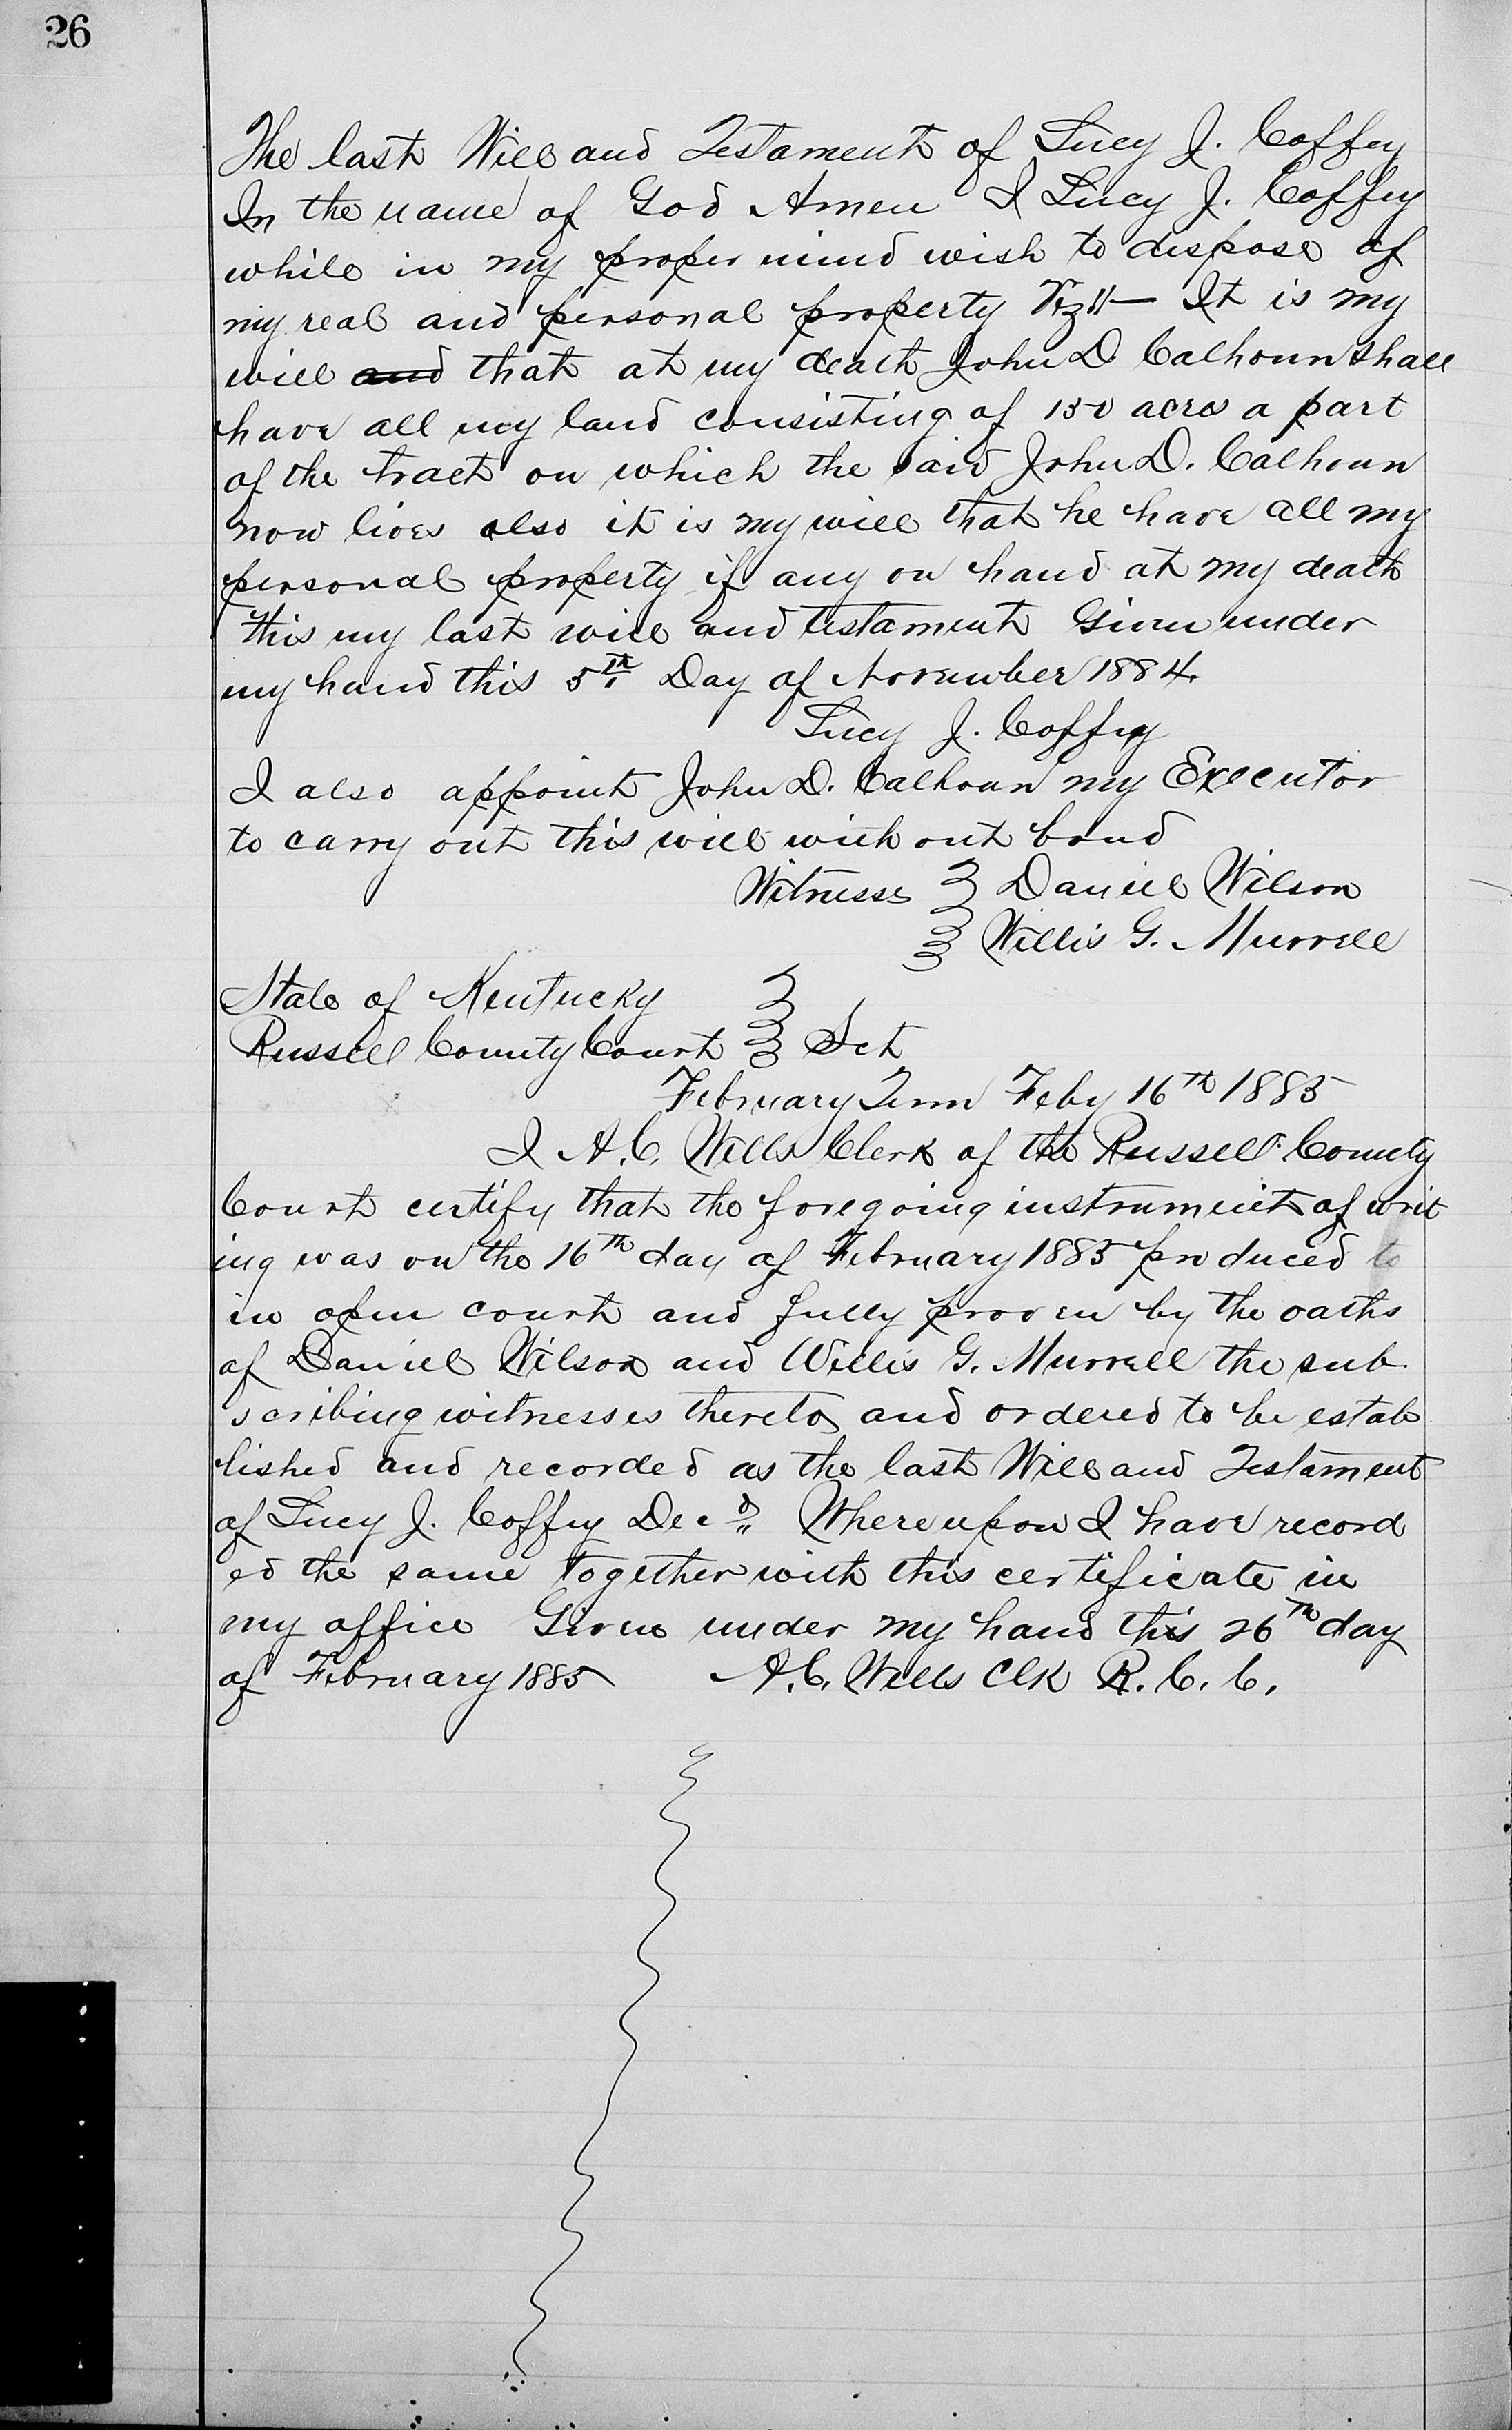 26
The last Will and Testament of Lucy J. Coffey
In the name of God Amen I Lucy J. Coffey
while in my proper mind wish to dispose of
my real and personal property Viz:— It is my
will and that at my death John D Calhoun shall
have all my land consisting of 150 acres a part
of the tract on which the said John D. Calhoun
now lives also it is my will that he have all my
personal property if any on hand at my death
this my last will and testament Given under
my hand this 5th Day of November 1884.
Lucy J. Coffey
I also appoint John D. Calhoun my Executor
to carry out this will with out bond
Witnesses Daniel Wilson
Willis G. Murrell
State of Kentucky
Russell County Court Sct
February Term Feby 16th 1885
I A.C. Wells Clerk of the Russell County
Court certify that the foregoing instrument of writ
ing was on the 16th day of February 1885 produced to
in open court and fully proven by the oaths
of Daniel Wilson and Willis G. Murrell the sub
scribing witnesses thereto and ordered to be estab
lished and recorded as the last Will and Testament
of Lucy J. Coffey Decd. Whereupon I have record
ed the same together with this certificate in
my office Given under my hand this 26th day
of February 1885 A.C. Wells Clk R.C.C.